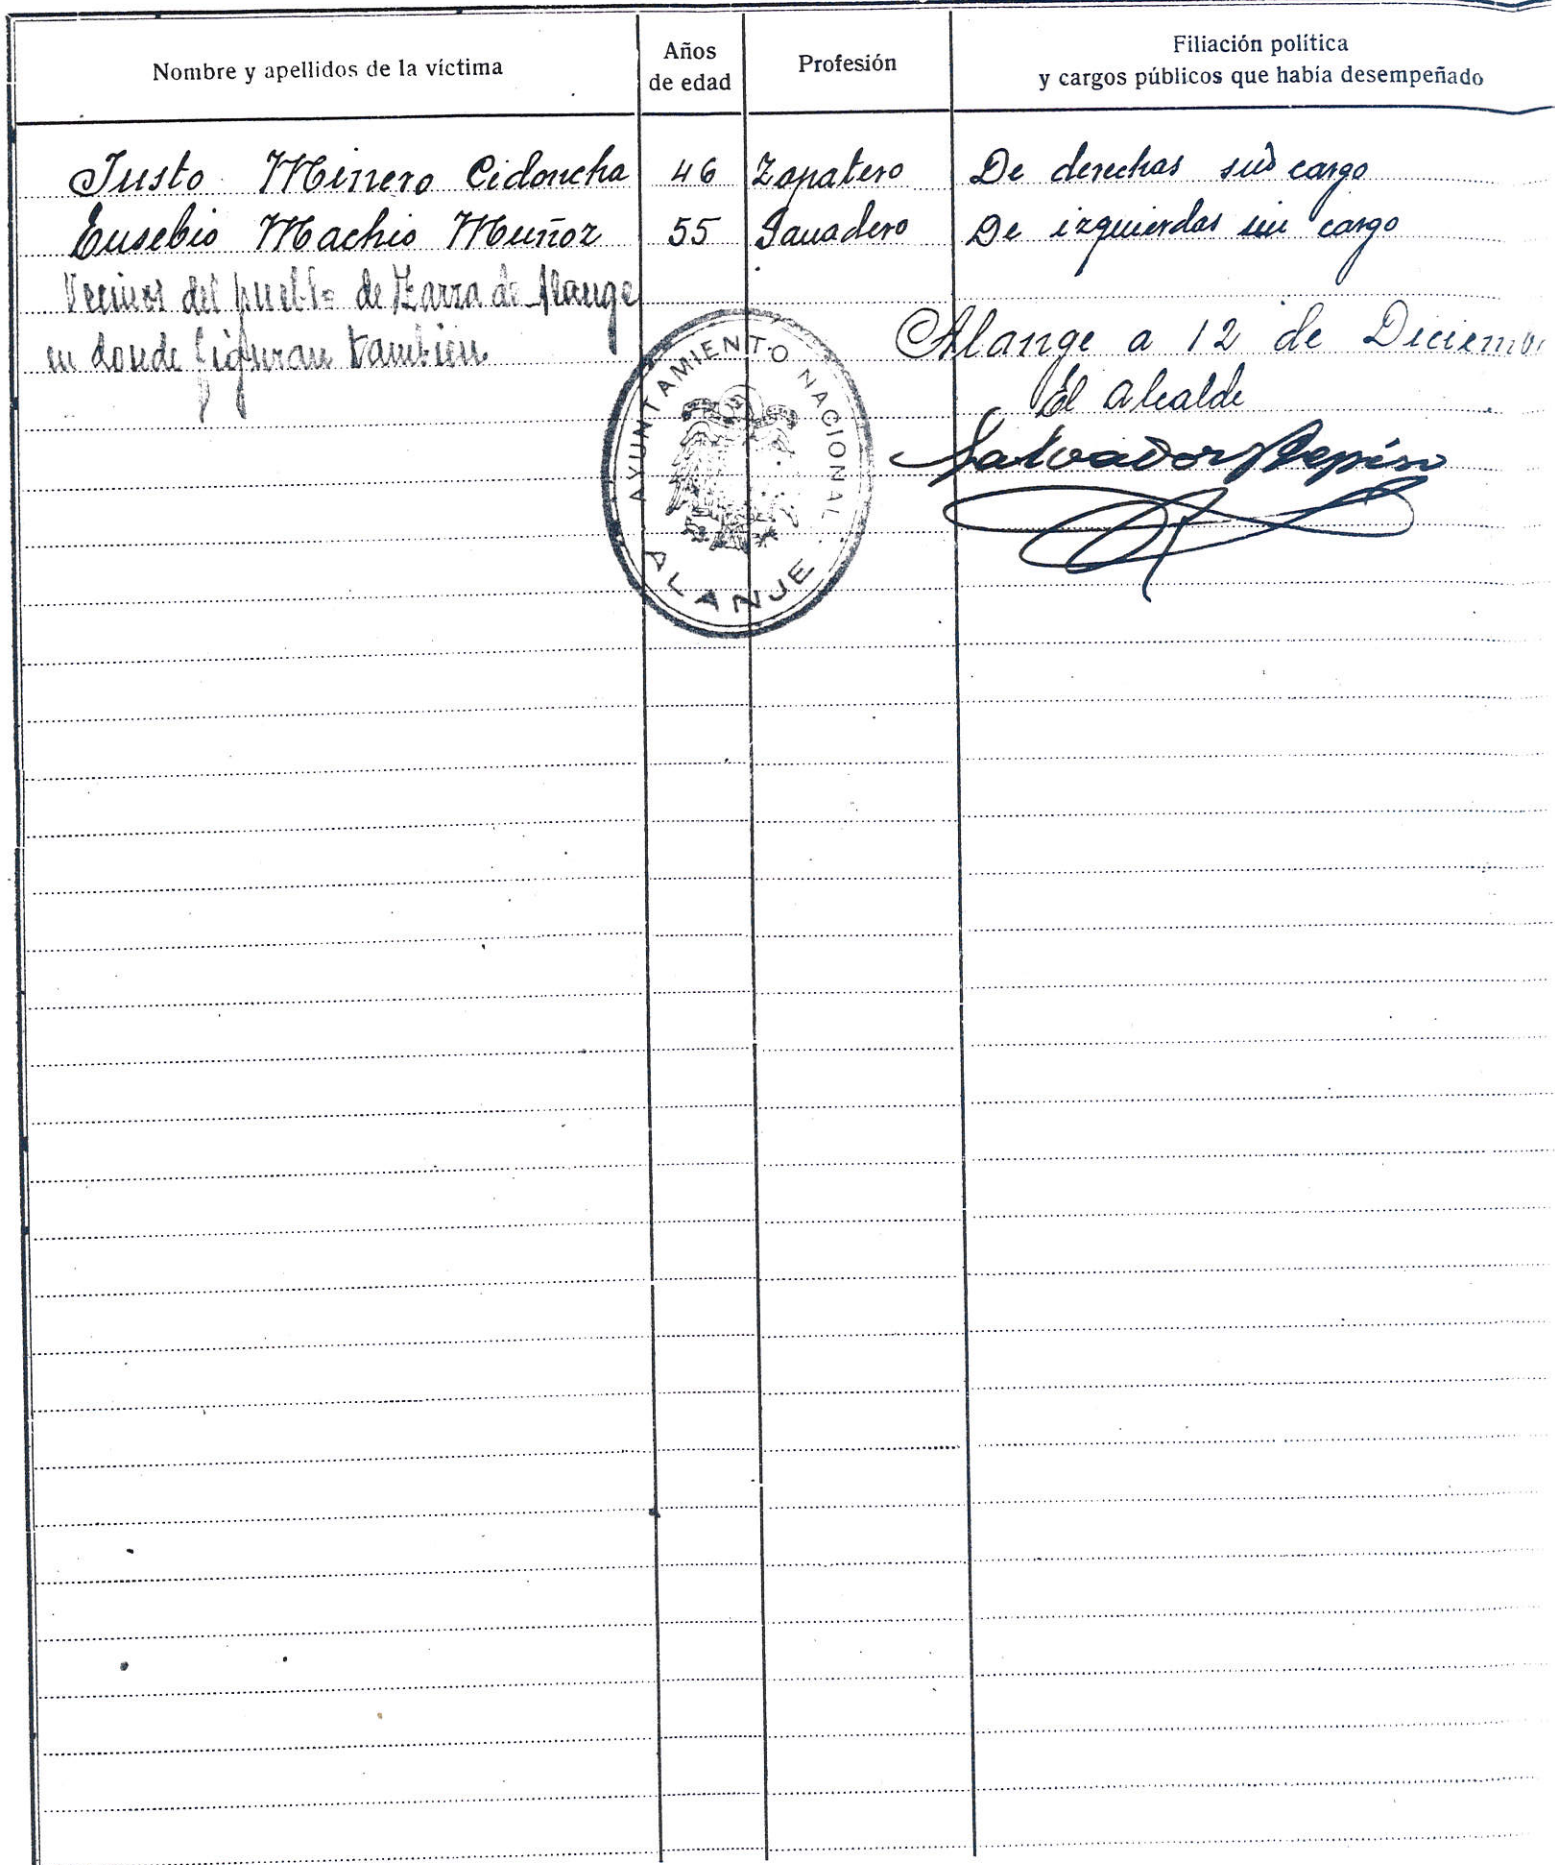 Nombre y apellidos de la víctima
Años de edad
Profesión
Filiación política
y cargos públicos que había desempeñado
Justo Minero Cidoncha 46 Zapatero De derechas sin cargo
Eusebio Machio Muñoz 55 Ganadero De izquierdas sin cargo
Vecinos del pueblo de Zarza de Alange
en donde figuran también
Alange a 12 de
El Alcalde
Salvador
AYUNTAMIENTO NACIONAL
ALANJE